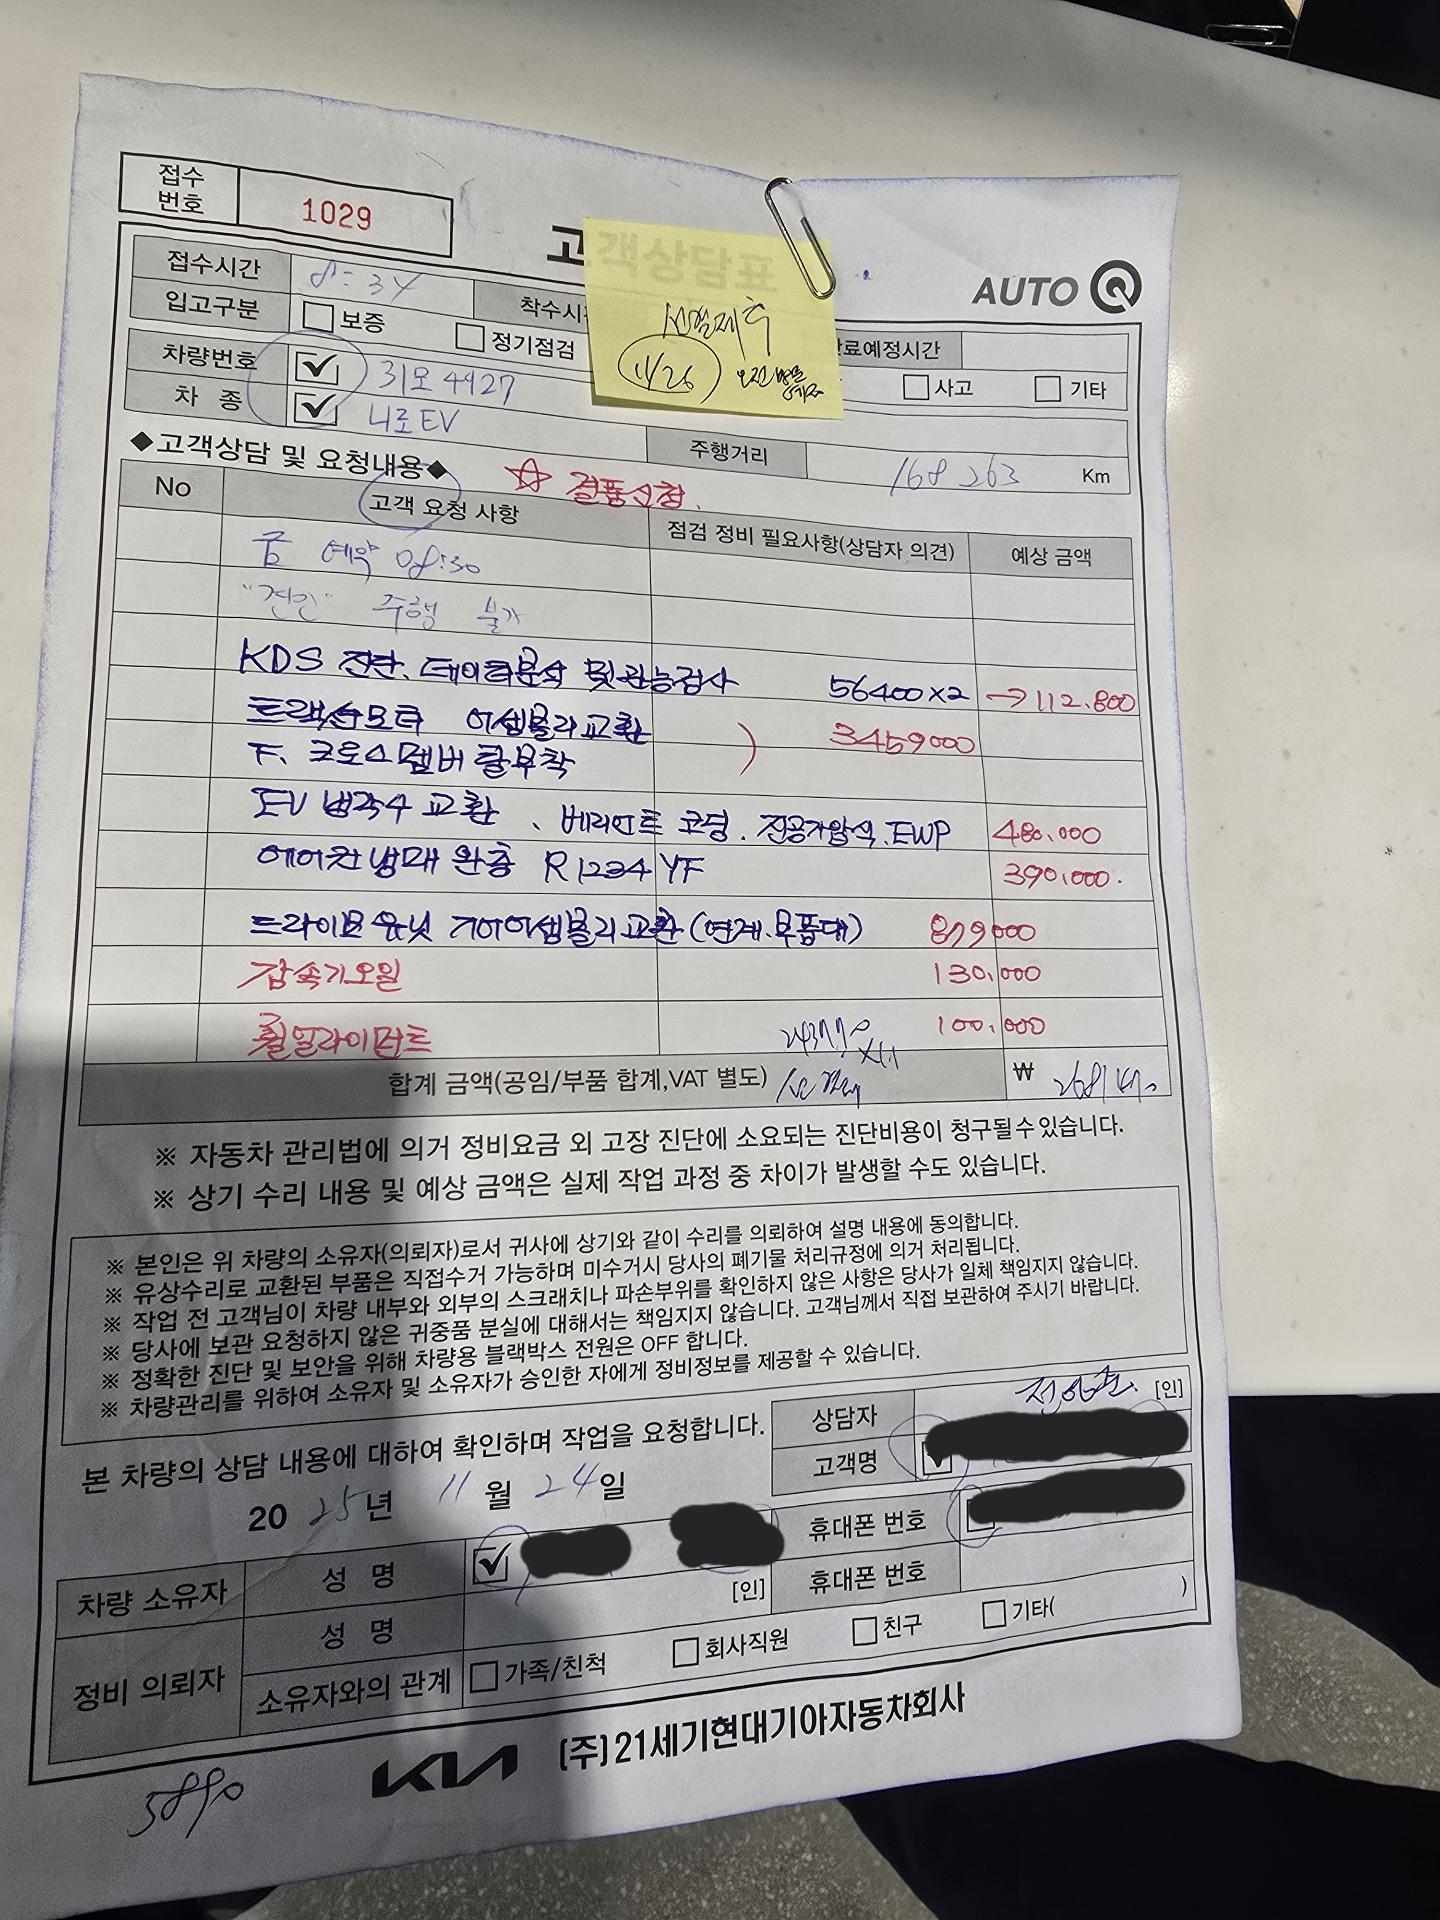 접수
번호
1029
고객상담표
AUTO Q
접수시간 8:34
착수시
완료예정시간
입고구분 보증 정기점검 사고 기타
11/26 오전
차량번호 31모4927
차 종 니로EV
주행거리 168263 Km
◆고객상담 및 요청내용◆ ☆ 결품신청.
No 고객 요청 사항 점검 정비 필요사항(상담자 의견) 예상 금액
예약 08:30
"견인" 주행 불가
KDS 진단. 데이터분석 및 관능검사 56400×2 →112.800
트랙숀모터 어셈블리 교환 ) 3459000
F. 크로스멤버 탈부착
EV 냉각수 교환 、 베리언트 코딩. 진공가압식. EWP 480.000
에어컨냉매 완충 R1234YF 390.000.
드라이브유닛 기어어셈블리교환 (연계.부품대) 879000
감속기오일 130,000
휠얼라이먼트 100,000
합계 금액(공임/부품 합계,VAT 별도) ₩
※ 자동차 관리법에 의거 정비요금 외 고장 진단에 소요되는 진단비용이 청구될수있습니다.
※ 상기 수리 내용 및 예상 금액은 실제 작업 과정 중 차이가 발생할 수도 있습니다.
※ 본인은 위 차량의 소유자(의뢰자)로서 귀사에 상기와 같이 수리를 의뢰하여 설명 내용에 동의합니다.
※ 유상수리로 교환된 부품은 직접수거 가능하며 미수거시 당사의 폐기물 처리규정에 의거 처리됩니다.
※ 작업 전 고객님이 차량 내부와 외부의 스크래치나 파손부위를 확인하지 않은 사항은 당사가 일체 책임지지 않습니다.
※ 당사에 보관 요청하지 않은 귀중품 분실에 대해서는 책임지지 않습니다. 고객님께서 직접 보관하여 주시기 바랍니다.
※ 정확한 진단 및 보안을 위해 차량용 블랙박스 전원은 OFF 합니다.
※ 차량관리를 위하여 소유자 및 소유자가 승인한 자에게 정비정보를 제공할 수 있습니다.
본 차량의 상담 내용에 대하여 확인하며 작업을 요청합니다.
상담자 [인]
고객명
2025년 11월 24일
휴대폰 번호
차량 소유자 성 명 [인]
휴대폰 번호
정비 의뢰자 성 명
소유자와의 관계 가족/친척 회사직원 친구 기타( )
KIA (주)21세기현대기아자동차회사
5890